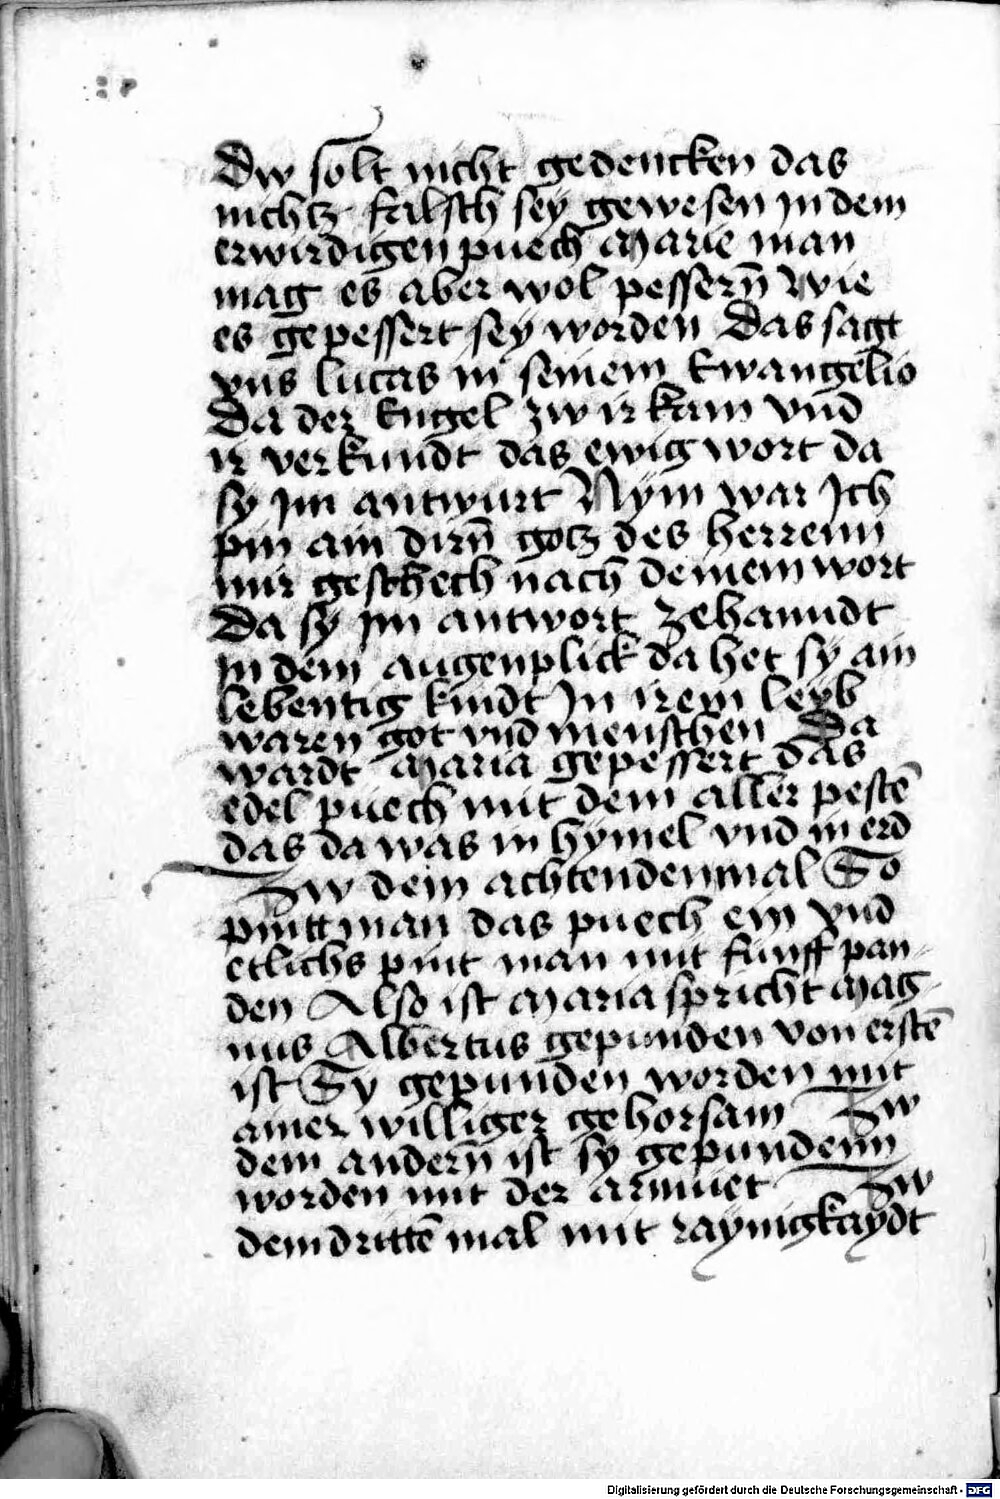 Dw solt nicht gedencken das
nichtz falsch sey gewesen in dem
erwirdigen puech Marie man
mag es aber wol pessern̄ Wie
es gepessert sey worden Das sagt
vns lucas in seinem Ewangelio
Da der Engel zw ir kam vnd
ir verkundt das ewig wort da
sy im antwurt Nym war Ich
pin ain dirn̄ gotz des herrenn
mir geschech nach deinem wort
Da sy im antwort zehanndt
in dem augenplick da het sy ain
lebentig kindt In irem leyb
waren got vnd menschen Da
wardt Maria gepessert das
edel puech mit dem aller pestē
das da was in hymel vnd in erd
Zw dem achtendenmal So
pintt man das puech ein vnd
etlichs pint man mit funff pan-
den Also ist Maria spricht Mag-
nus Albertus gepunden von erstē
ist Sy gepunden worden mit
ainer williger gehorsam Zw
dem andern̄ ist sy gepundenn
worden mit der armuet Zw
dem drittē mal mit raynigkaydt
Digitalisierung gefördert durch die Deutsche Forschungsgemeinschaft - DFG